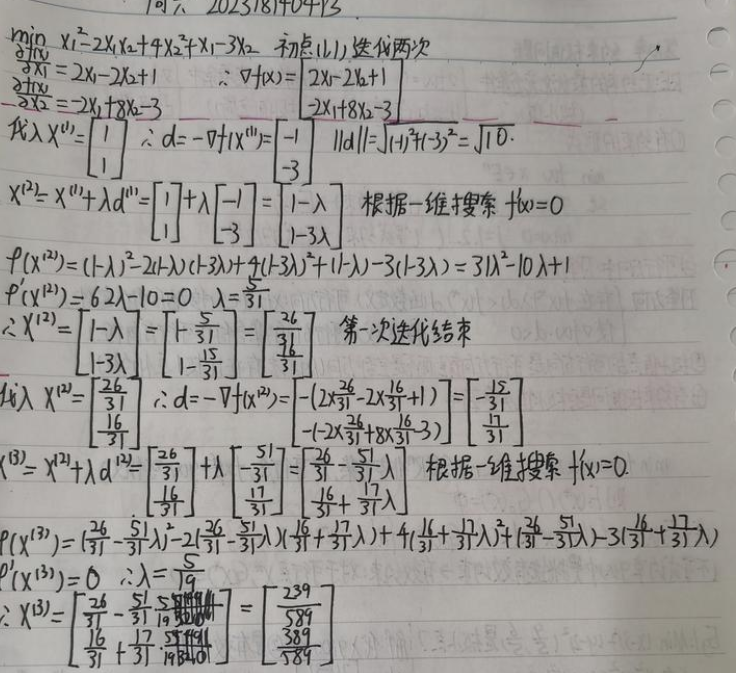 202318140413.
min x₁²-2x₁x₂+4x₂²+x₁-3x₂ 初点(1,1),迭代两次
∂f(x)/∂x₁ = 2x₁-2x₂+1 ∴ ∇f(x) = [2x₁-2x₂+1; -2x₁+8x₂-3]
∂f(x)/∂x₂ = -2x₁+8x₂-3
代入 X⁽¹⁾ = [1; 1] ∴ d = -∇f(x⁽¹⁾) = [-1; -3] ||d|| = √(-1)²+(-3)² = √10.
X⁽²⁾ = X⁽¹⁾+λd⁽¹⁾ = [1; 1] + λ[-1; -3] = [1-λ; 1-3λ] 根据一维搜索 f'(x)=0
φ(x⁽²⁾) = (1-λ)²-2(1-λ)(1-3λ)+4(1-3λ)²+(1-λ)-3(1-3λ) = 31λ²-10λ+1
φ'(x⁽²⁾) = 62λ-10=0 λ=5/31
∴ X⁽²⁾ = [1-λ; 1-3λ] = [1-5/31; 1-15/31] = [26/31; 16/31] 第一次迭代结束
代入 X⁽²⁾ = [26/31; 16/31] ∴ d = -∇f(x⁽²⁾) = [-(2×26/31-2×16/31+1); -(-2×26/31+8×16/31-3)] = [-51/31; 17/31]
X⁽³⁾ = X⁽²⁾+λd⁽²⁾ = [26/31; 16/31] + λ[-51/31; 17/31] = [26/31-51/31λ; 16/31+17/31λ] 根据一维搜索 f'(x)=0.
φ(x⁽³⁾) = (26/31-51/31λ)²-2(26/31-51/31λ)(16/31+17/31λ)+4(16/31+17/31λ)²+(26/31-51/31λ)-3(16/31+17/31λ)
φ'(x⁽³⁾)=0 ∴λ=5/19
∴ X⁽³⁾ = [26/31-51/31·5/19; 16/31+17/31·5/19] = [239/589; 389/589]